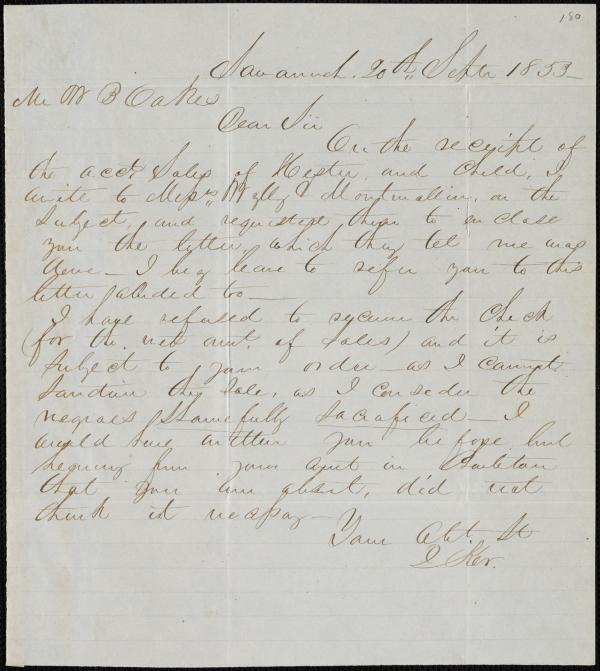 180
Savannah. 20th Septr 1853
Mr W B Oakes
Dear Sir
On the receipt of
the acct Sales of Hester, and child, I
wrote to Messrs Wylly & Montmollin, on the
subject, and requested them to inclose
you the letter, which they tell me was
done — I beg leave to refer you to this
letter aluded to —
I have refused to receive the check
(for the net amt. of sales) and it is
subject to your order — as I cannot
sanction the sale, as I consider the
negroes shamefully sacraficed — I
would have written you before, but
hearing from your agent in Charleston
that you were absent, did not
think it necessary —
Your Obt. St
Ker.